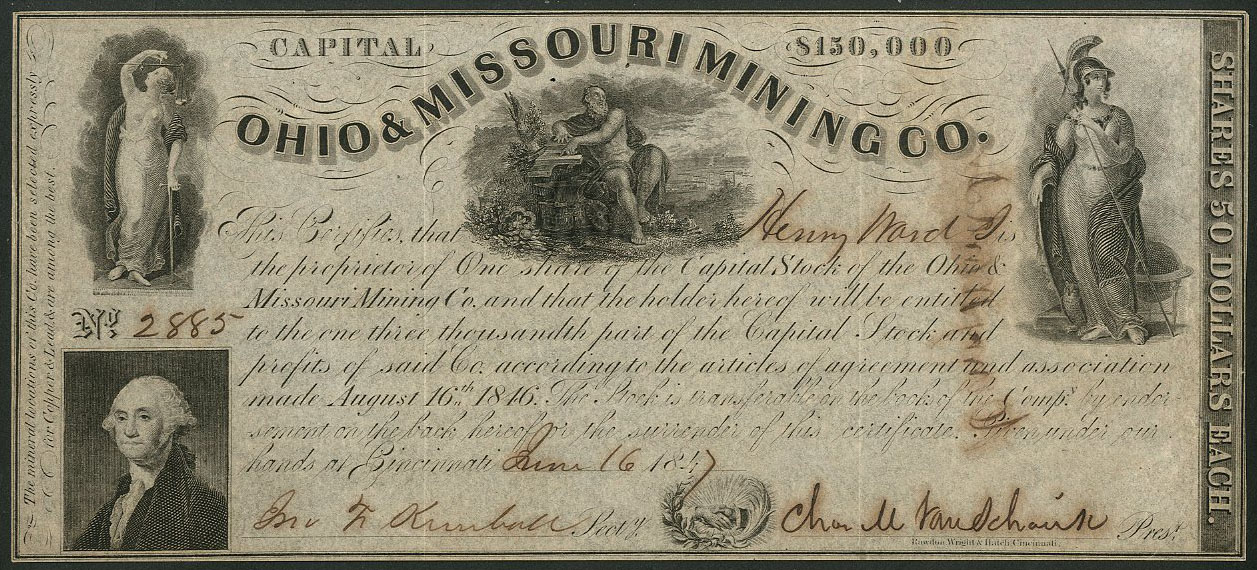 CAPITAL $150,000
OHIO & MISSOURI MINING CO.
This Certifies, that Henry Ward Is
the proprietor of One share of the Capital Stock of the Ohio &
Missouri Mining Co. and that the holder hereof will be entitled
to the one three thousandth part of the Capital Stock and
profits of said Co. according to the articles of agreement and association
made August 16th 1846. The Stock is transferable on the book of the Compy. by endor-
sement on the back hereof or the surrender of this certificate. Given under our
hands at Cincinnati June 16 1847
Jno F. Kimball Secty. Chas M Van Schaick Prest.
Rawdon, Wright & Hatch, Cincinnati.
No. 2885
The mineral locations of this Co. have been selected expressly
for Copper & Lead & are among the best.
SHARES 50 DOLLARS EACH.